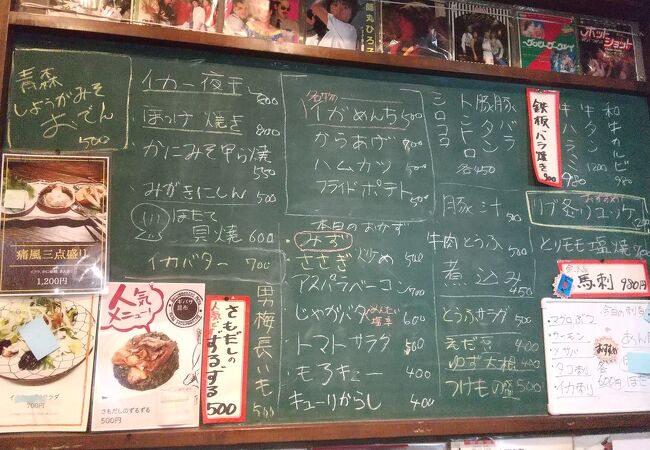 青森
しょうがみそ
おでん
500
イカ一夜干し 800
ほっけ焼き 800
かにみそ甲ら焼 550
みがきにしん 550
ほたて
貝焼 600
イカバター 700
名物
イガめんち 500
からあげ 800
ハムカツ 500
フライドポテト 500
本日のおかず
みず
ささぎ炒め 500
アスパラベーコン 700
じゃがバタ めんたい 塩辛
トマトサラダ 500
もろきゅー 400
キューリからし 400
男梅長いも 500
シロコロ
トントロ
豚タン
豚バラ
各450
豚汁
牛肉とうふ 500
煮込み 450
とうふサラダ 500
えだ豆 400
ゆず大根 400
つけもの盛 500
鉄板バラ焼き 900
牛ミノ
牛ハラミ 1200
和牛カルビ 980
おすすめ!
リブ炙りユッケ
とりモモ塩焼
馬刺 980円
今日の刺身
・マグロぶつ
・サーモン
・〆サバ
・タコ刺
・イカ刺
おすすめ
各600円
痛風三点盛り
1,200円
700円
人気メニュー!
ギバサ
昆布
さもだしのずるずる
500円
人気だよ
さもだしの
ずるずる
500